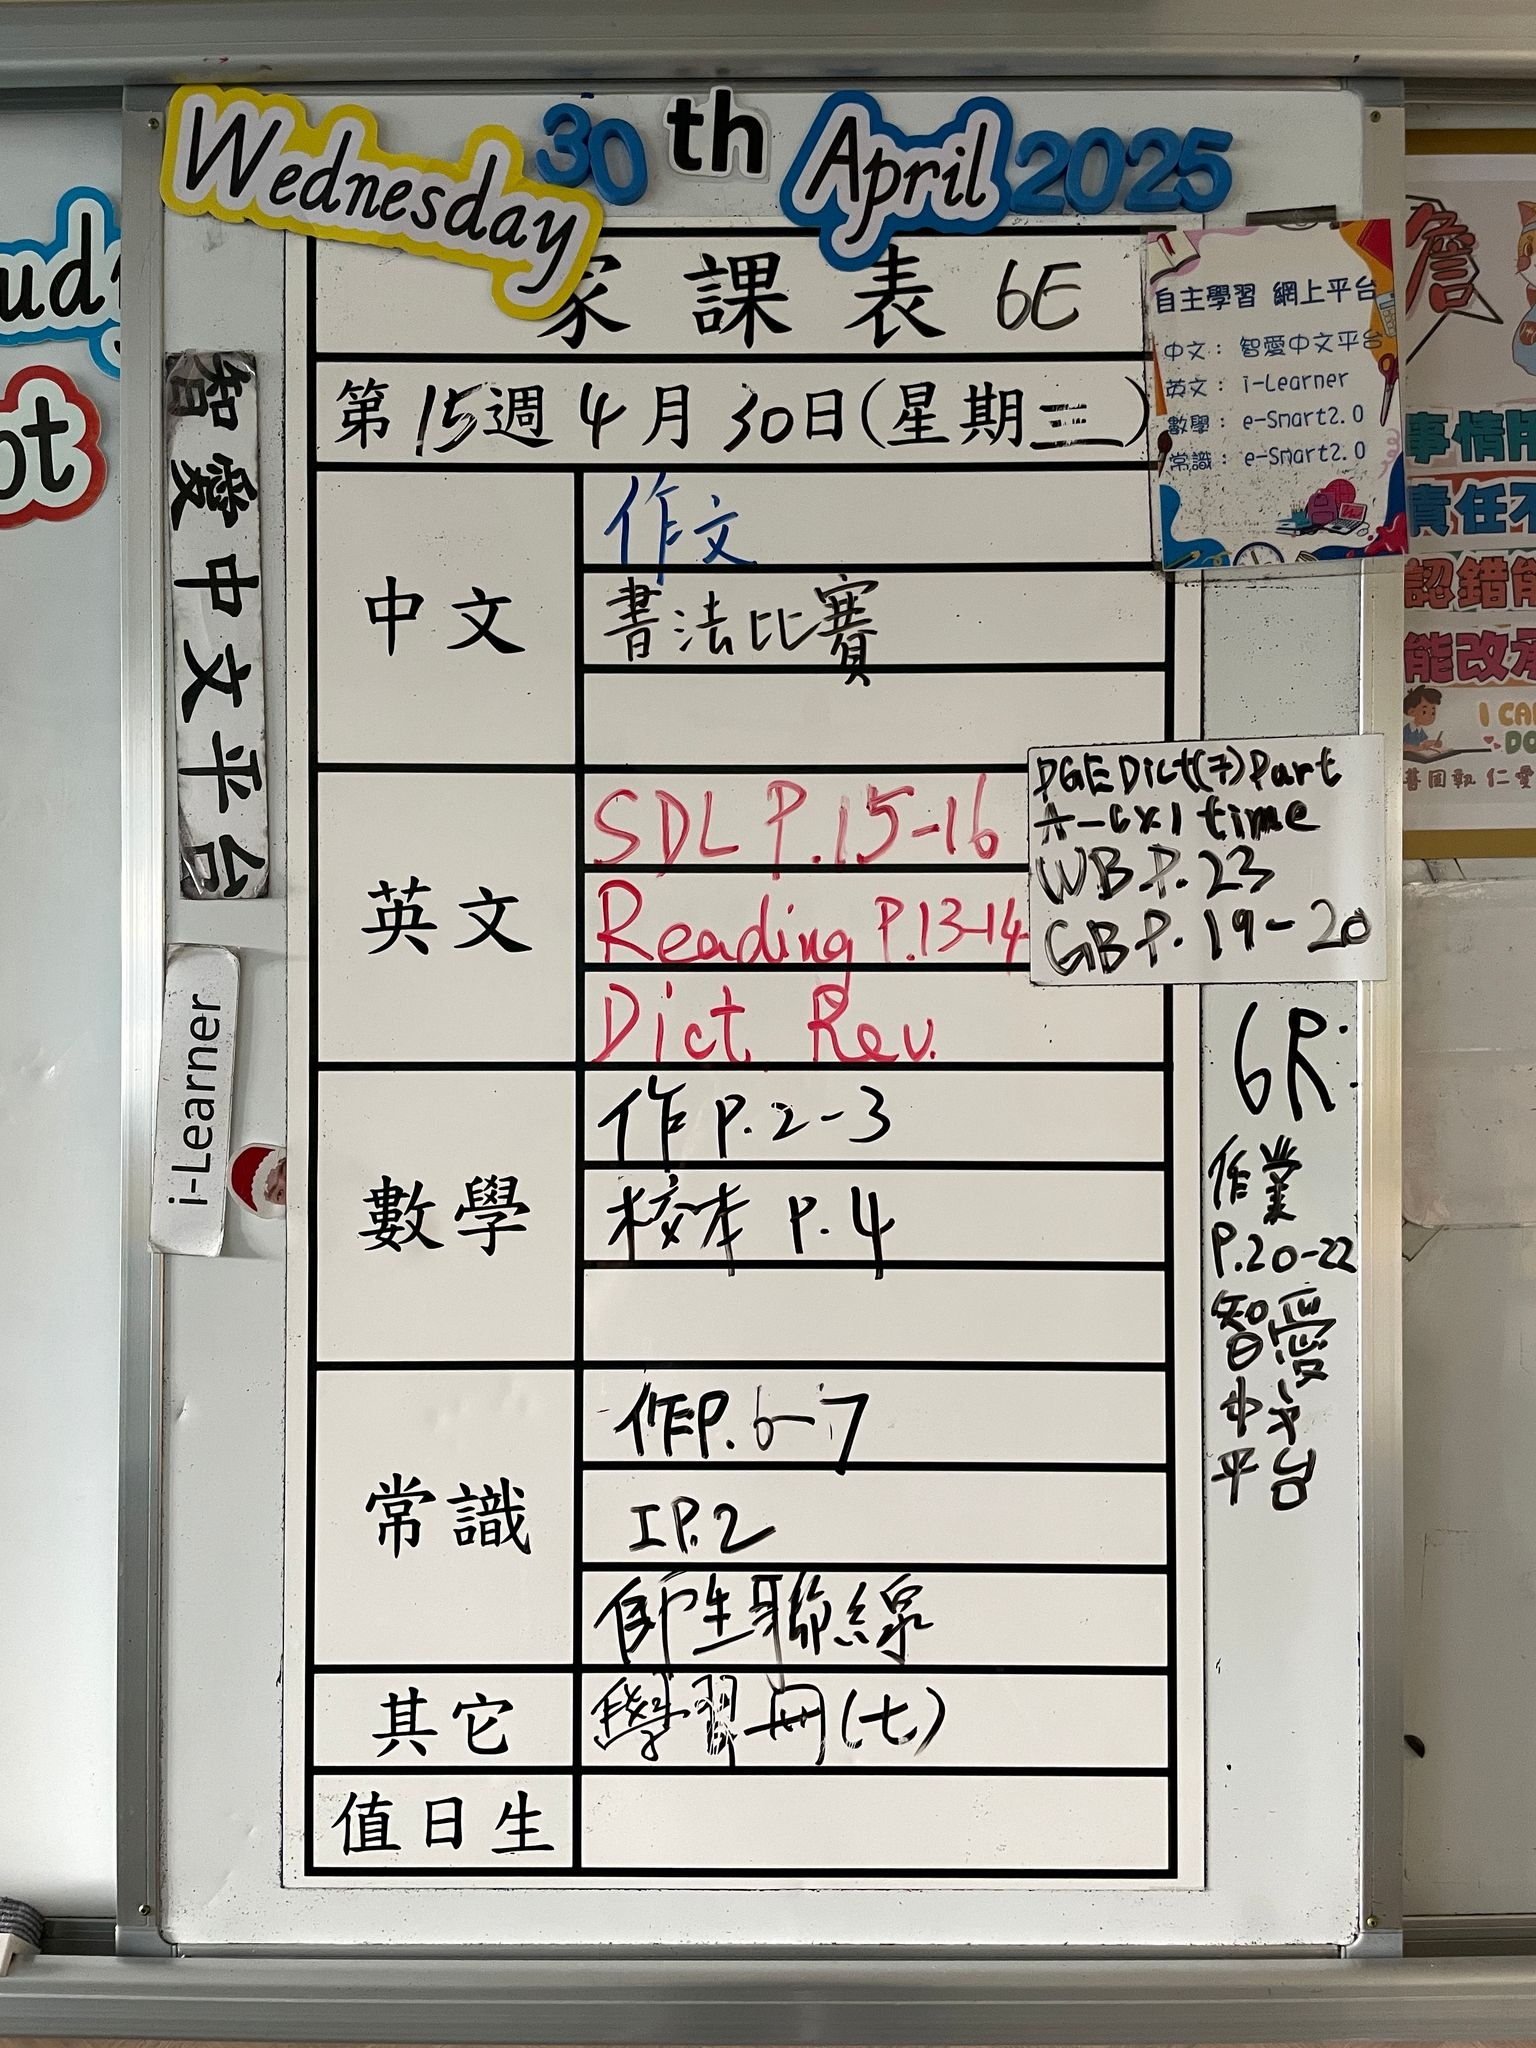 Wednesday 30th April 2025
家課表 6E
第15週4月30日(星期三)
自主學習 網上平台
中文：智愛中文平台
英文：i-Learner
數學：e-Smart2.0
常識：e-Smart2.0
智愛中文平台
i-Learner
中文
作文
書法比賽
英文
SDL P.15-16
Reading P.13-14
Dict. Rev.
PGE Dict(7) Part
A-C x 1 time
WB P.23
GB P.19-20
數學
作 P.2-3
校本 P.4
常識
作P.6-7
IP.2
師生聯線
其它
學習冊(七)
值日生
6R:
作業
P.20-22
智愛
中文
平台
事情
責任
認錯
能改
I CA
DO